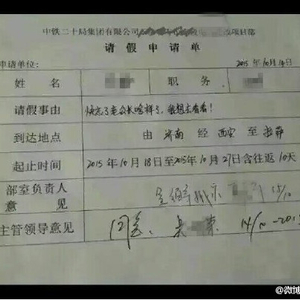 中铁二十局集团有限公司
请 假 申 请 单
申请单位: 2015年10月14日
姓 名 职 务
请假事由 快忘了老婆长啥样了,我想去看看!
到达地点 由 济南 经 西安 至
起止时间 2015年10月18日至2015年10月27日含往返10天
部室负责人
意 见
主管领导意见 同意 14/10-201
@微博